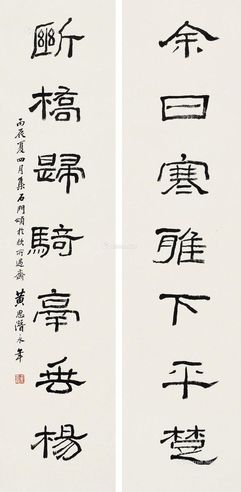 余日寒雅下平楚
斷橋歸騎亭垂楊
丙辰夏四月集石門頌於所遇齋 黃思潛永年